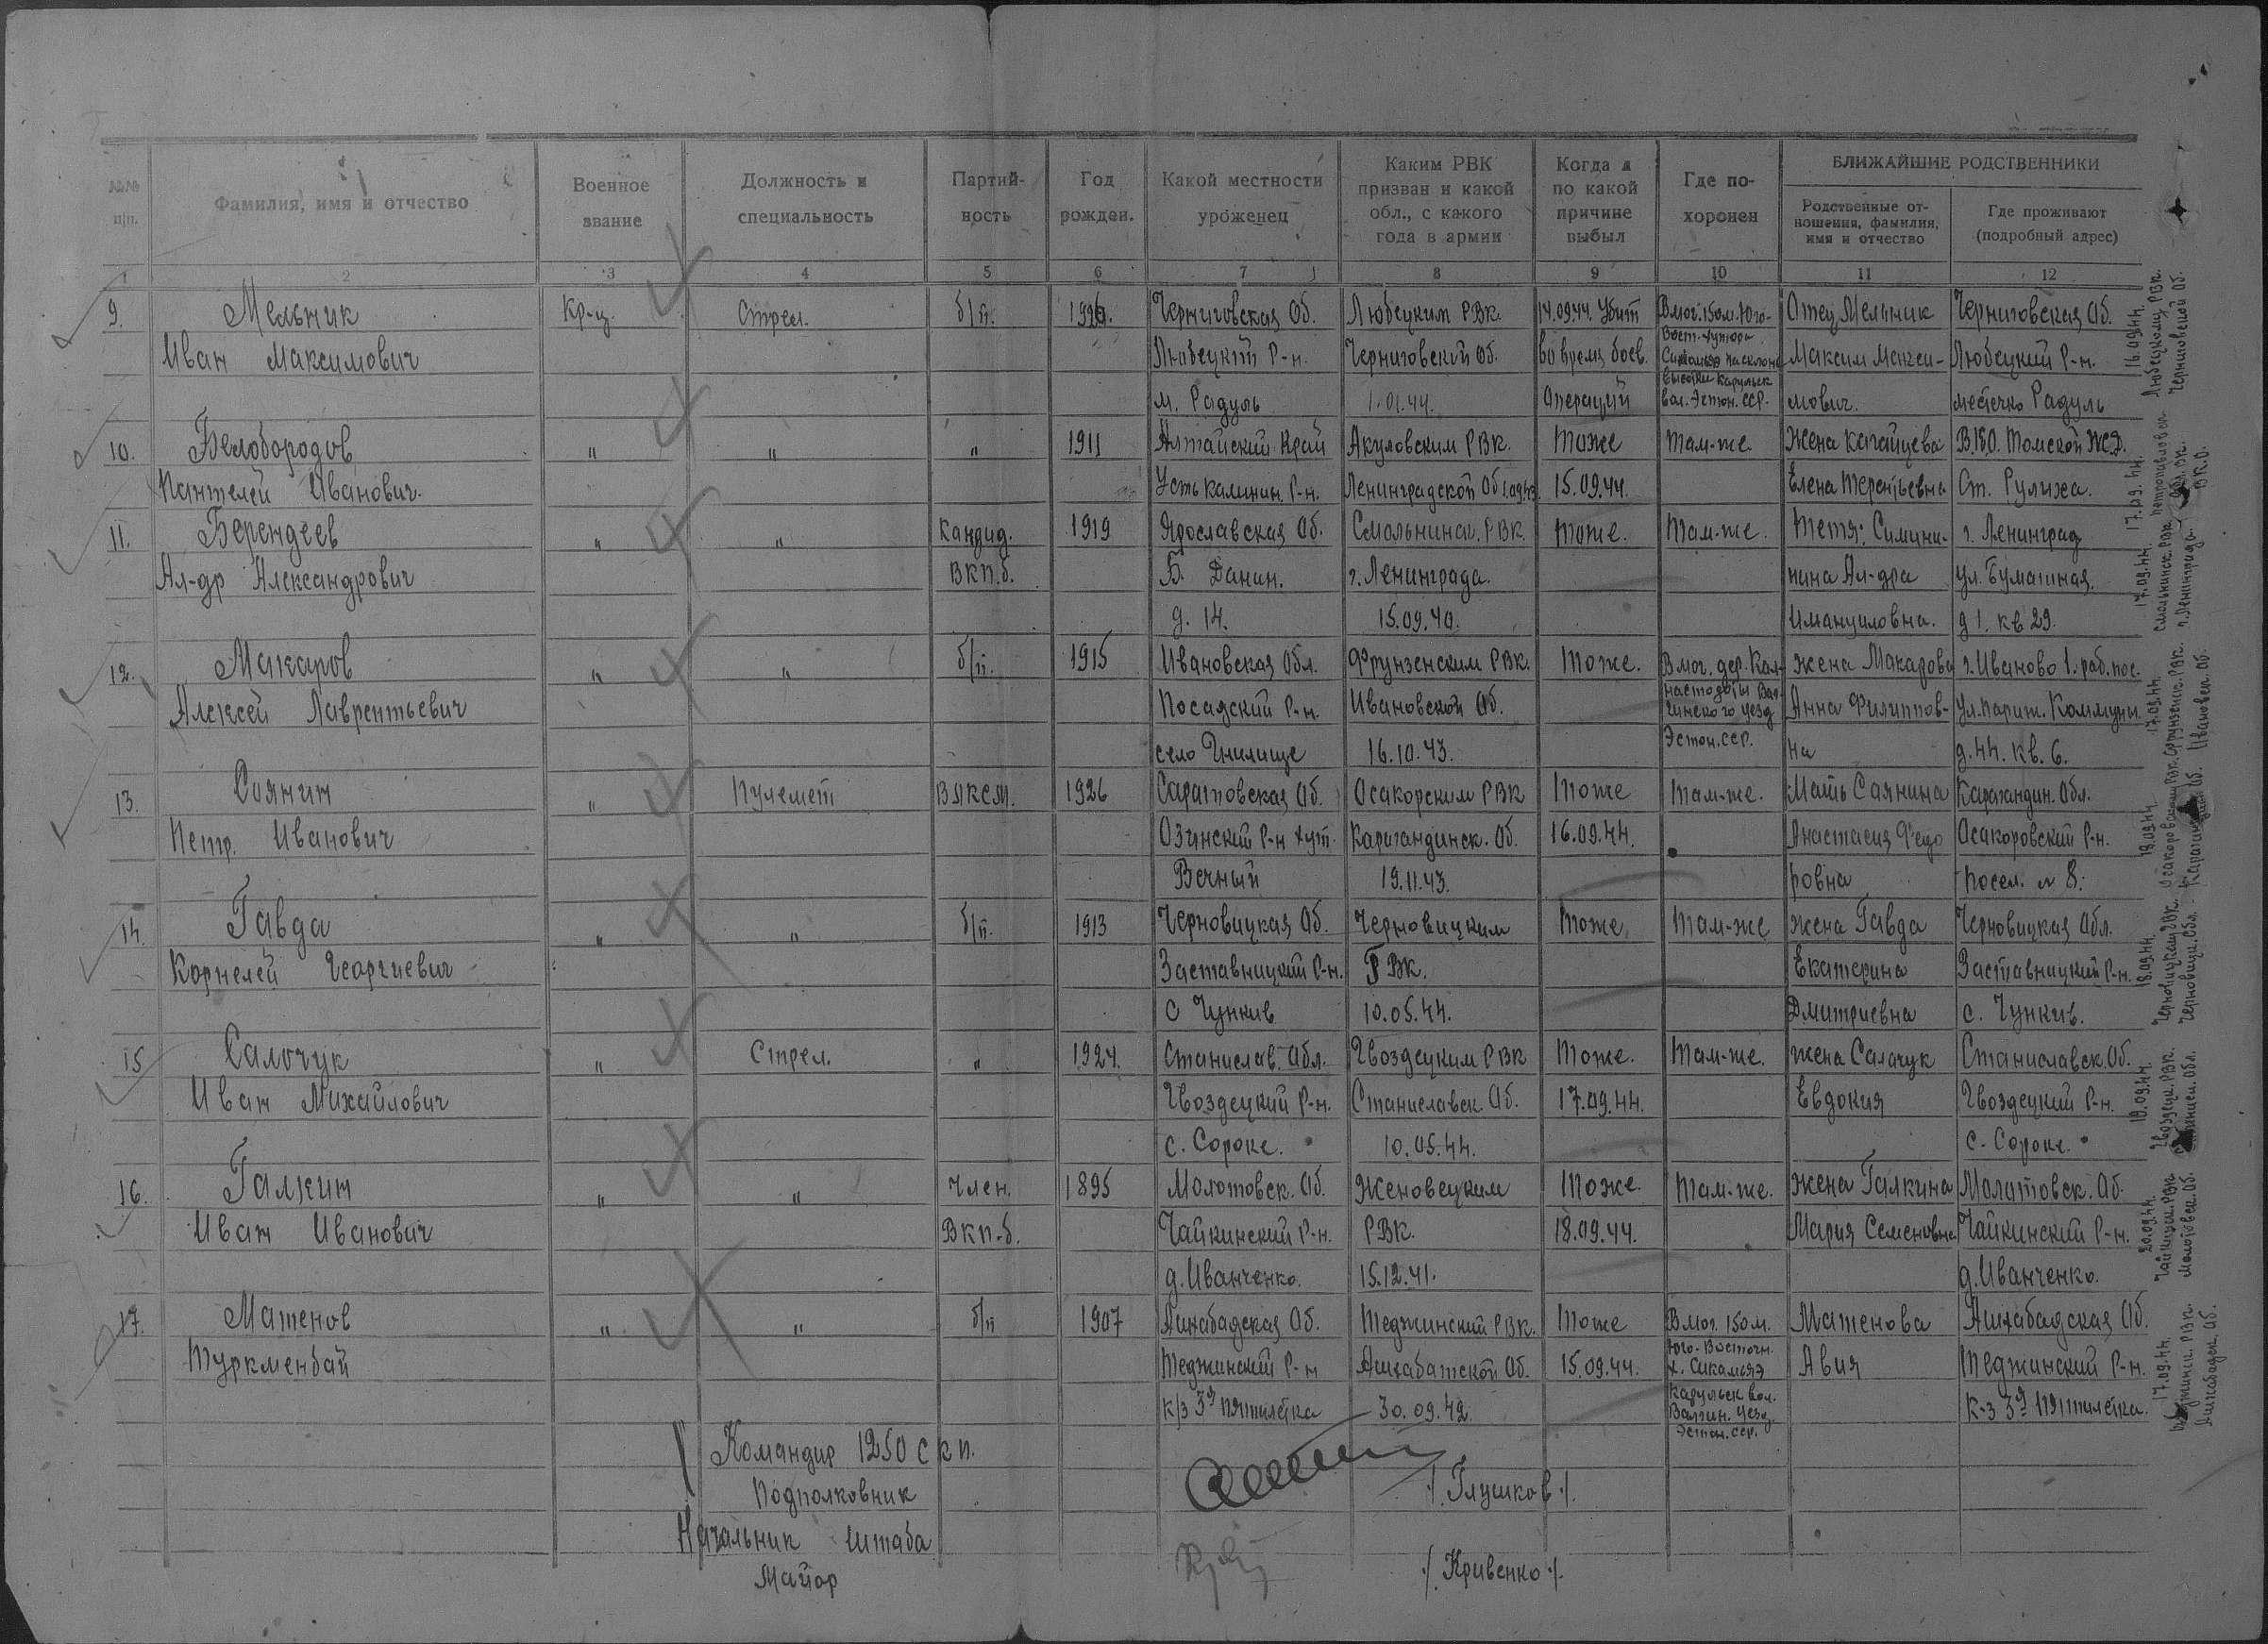 №№ п/п.
Фамилия, имя и отчество
Военное звание
Должность и специальность
Партий-ность
Год рожден.
Какой местности уроженец
Каким РВК призван и какой обл., с какого года в армии
Когда и по какой причине выбыл
Где по-хоронен
БЛИЖАЙШИЕ РОДСТВЕННИКИ
Родственные от-ношения, фамилия, имя и отчество
Где проживают (подробный адрес)
1 2 3 4 5 6 7 8 9 10 11 12
9. Мельник Кр-ц. Стрел. б/п. 1926. Черниговская Об. Любецким РВК. 14.09.44. Убит В мог. 150 м. Юго- Отец Мельник Черниговская Об.
Иван Максимович Любецкий Р-н. Черниговской Об. во время боев. Вост. хутора Максим Макси- Любецкий Р-н.
м. Радуль 1.01.44. Операций высоты Карульск вол. Эстон. ССР. мович. местечко Радуль
10. Белобородов " " " 1911 Алтайский Край Акуловским РВК. Тоже Там-же. Жена Кагайцева В.150. Томской Ж.Д.
Пантелей Иванович. Усть Калинин. Р-н. Ленинградской Об. 15.09.44. Елена Терентьевна Ст. Рулиха.
11. Берендеев " " Кандид. 1919 Ярославская Об. Смольнинск. РВК Тоже. Там-же. Тетя: г. Ленинград
Ал-др Александрович ВКП.б. Б. Данин. г. Ленинграда. нина Ал-дра ул. Бумажная.
д. 14. 15.09.40. Имануиловна. д 1. кв 29.
12. Макаров " " б/п. 1915 Ивановская Обл. Фрунзенским РВК. Тоже. В мог. дер. Жена Макарова г. Иваново 1. раб. пос.
Алексей Лаврентьевич Посадский Р-н. Ивановской Об. уезд Анна Филиппов- Ул. Париж. Коммуны.
село Гнилище 16.10.43. Эстон. ССР. на д. 44. кв. 6.
13. Саянин " Пулемет ВЛКСМ. 1926 Саратовская Об. Осакорским РВК Тоже Там-же. Мать Саянина Карагандин. Обл.
Петр. Иванович Озинский Р-н хут. Карагандинск. Об. 16.09.44. Анастасия Федо Осакоровский Р-н.
Вечный 19.11.43. ровна посел. № 8.
14. Гавда " " б/п. 1913 Черновицкая Об. Черновицким Тоже. Там-же Жена Гавда Черновицкая Обл.
Корнелей Георгиевич Заставницкий Р-н. РВК. Екатерина Заставницкий Р-н.
с Чункив 10.05.44. Дмитриевна с. Чункив.
15 Салочук " Стрел. " 1924. Станислав. Обл. Гвоздецким РВК Тоже. Там-же. Жена Салачук Станиславск. Об.
Иван Михайлович Гвоздецкий Р-н. Станиславск. Об. 17.09.44. Евдокия Гвоздецкий Р-н.
с. Сороке. 10.05.44. с. Сороке.
16. Галкин " " Член. 1895 Молотовск. Об. Женовецким Тоже. Там-же. Жена Галкина Молатовск. Об.
Иван Иванович ВКП.б. Чайкинский Р-н. РВК. 18.09.44. Мария Семеновна Чайкинский Р-н.
д. Иванченко. 15.12.41. д. Иванченко.
17. Матенов " " б/п 1907 Ашхабадская Об. Теджинский РВК. Тоже В мог. 150 м. Матенова Ашхабадская Об.
Туркменбай Теджинский Р-н Ашхабатской Об. 15.09.44. Юго-Восточн. Авия Теджинский Р-н.
к/з 3я пятилетка 30.09.42. Карульск вол. Валгин. уезд Эстон. ССР. к-з 3я пятилетка.
Командир 1250 с к п.
Подполковник /. Глушков /.
Начальник Штаба
Майор /. Кривенко /.
16.09.44. Любецкому РВК. Черниговской Об.
17.09.44.
17.09.44. Смольнинск. РВК г. Ленинграда.
17.09.44. Фрунзенск. РВК. Ивановск. Об.
18.09.44. Осакоровским РВК. Об.
18.09.44. Черновицким РВК. Черновицк. Обл.
19.09.44. Гвоздецк. РВК. Обл.
20.09.44. Чайкинск. РВК Молотовск. Об.
17.09.44. РВК. Ашхабадск. Об.